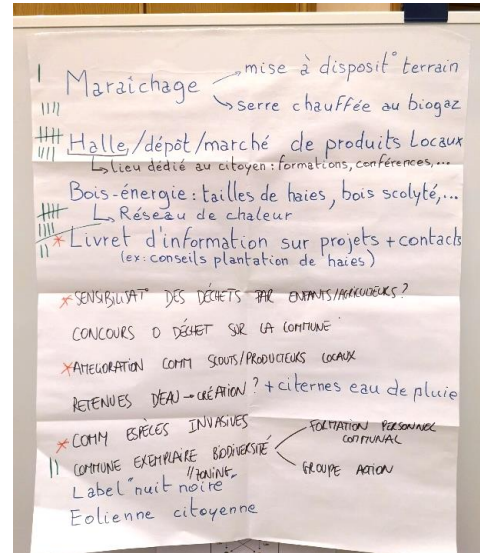 Maraîchage → mise à disposit° terrain
→ serre chauffée au biogaz
Halle/dépôt/marché de produits Locaux
↳ lieu dédié au citoyen : formations, conférences,...
Bois-énergie : tailles de haies, bois scolyté,...
↳ Réseau de chaleur
* Livret d'information sur projets + contacts
(ex: conseils plantation de haies)
* SENSIBILISAT° DES DÉCHETS PAR ENFANTS/AGRICULTEURS ?
CONCOURS 0 DÉCHET SUR LA COMMUNE
* AMELIORATION COMM SCOUTS/PRODUCTEURS LOCAUX
RETENUES D'EAU → CRÉATION ? + citernes eau de pluie
* COMM ESPÈCES INVASIVES
COMMUNE EXEMPLAIRE BIODIVERSITÉ
FORMATION PERSONNEL
COMMUNAL
GROUPE ACTION
// ZONING
Label "nuit noire
Eolienne citoyenne